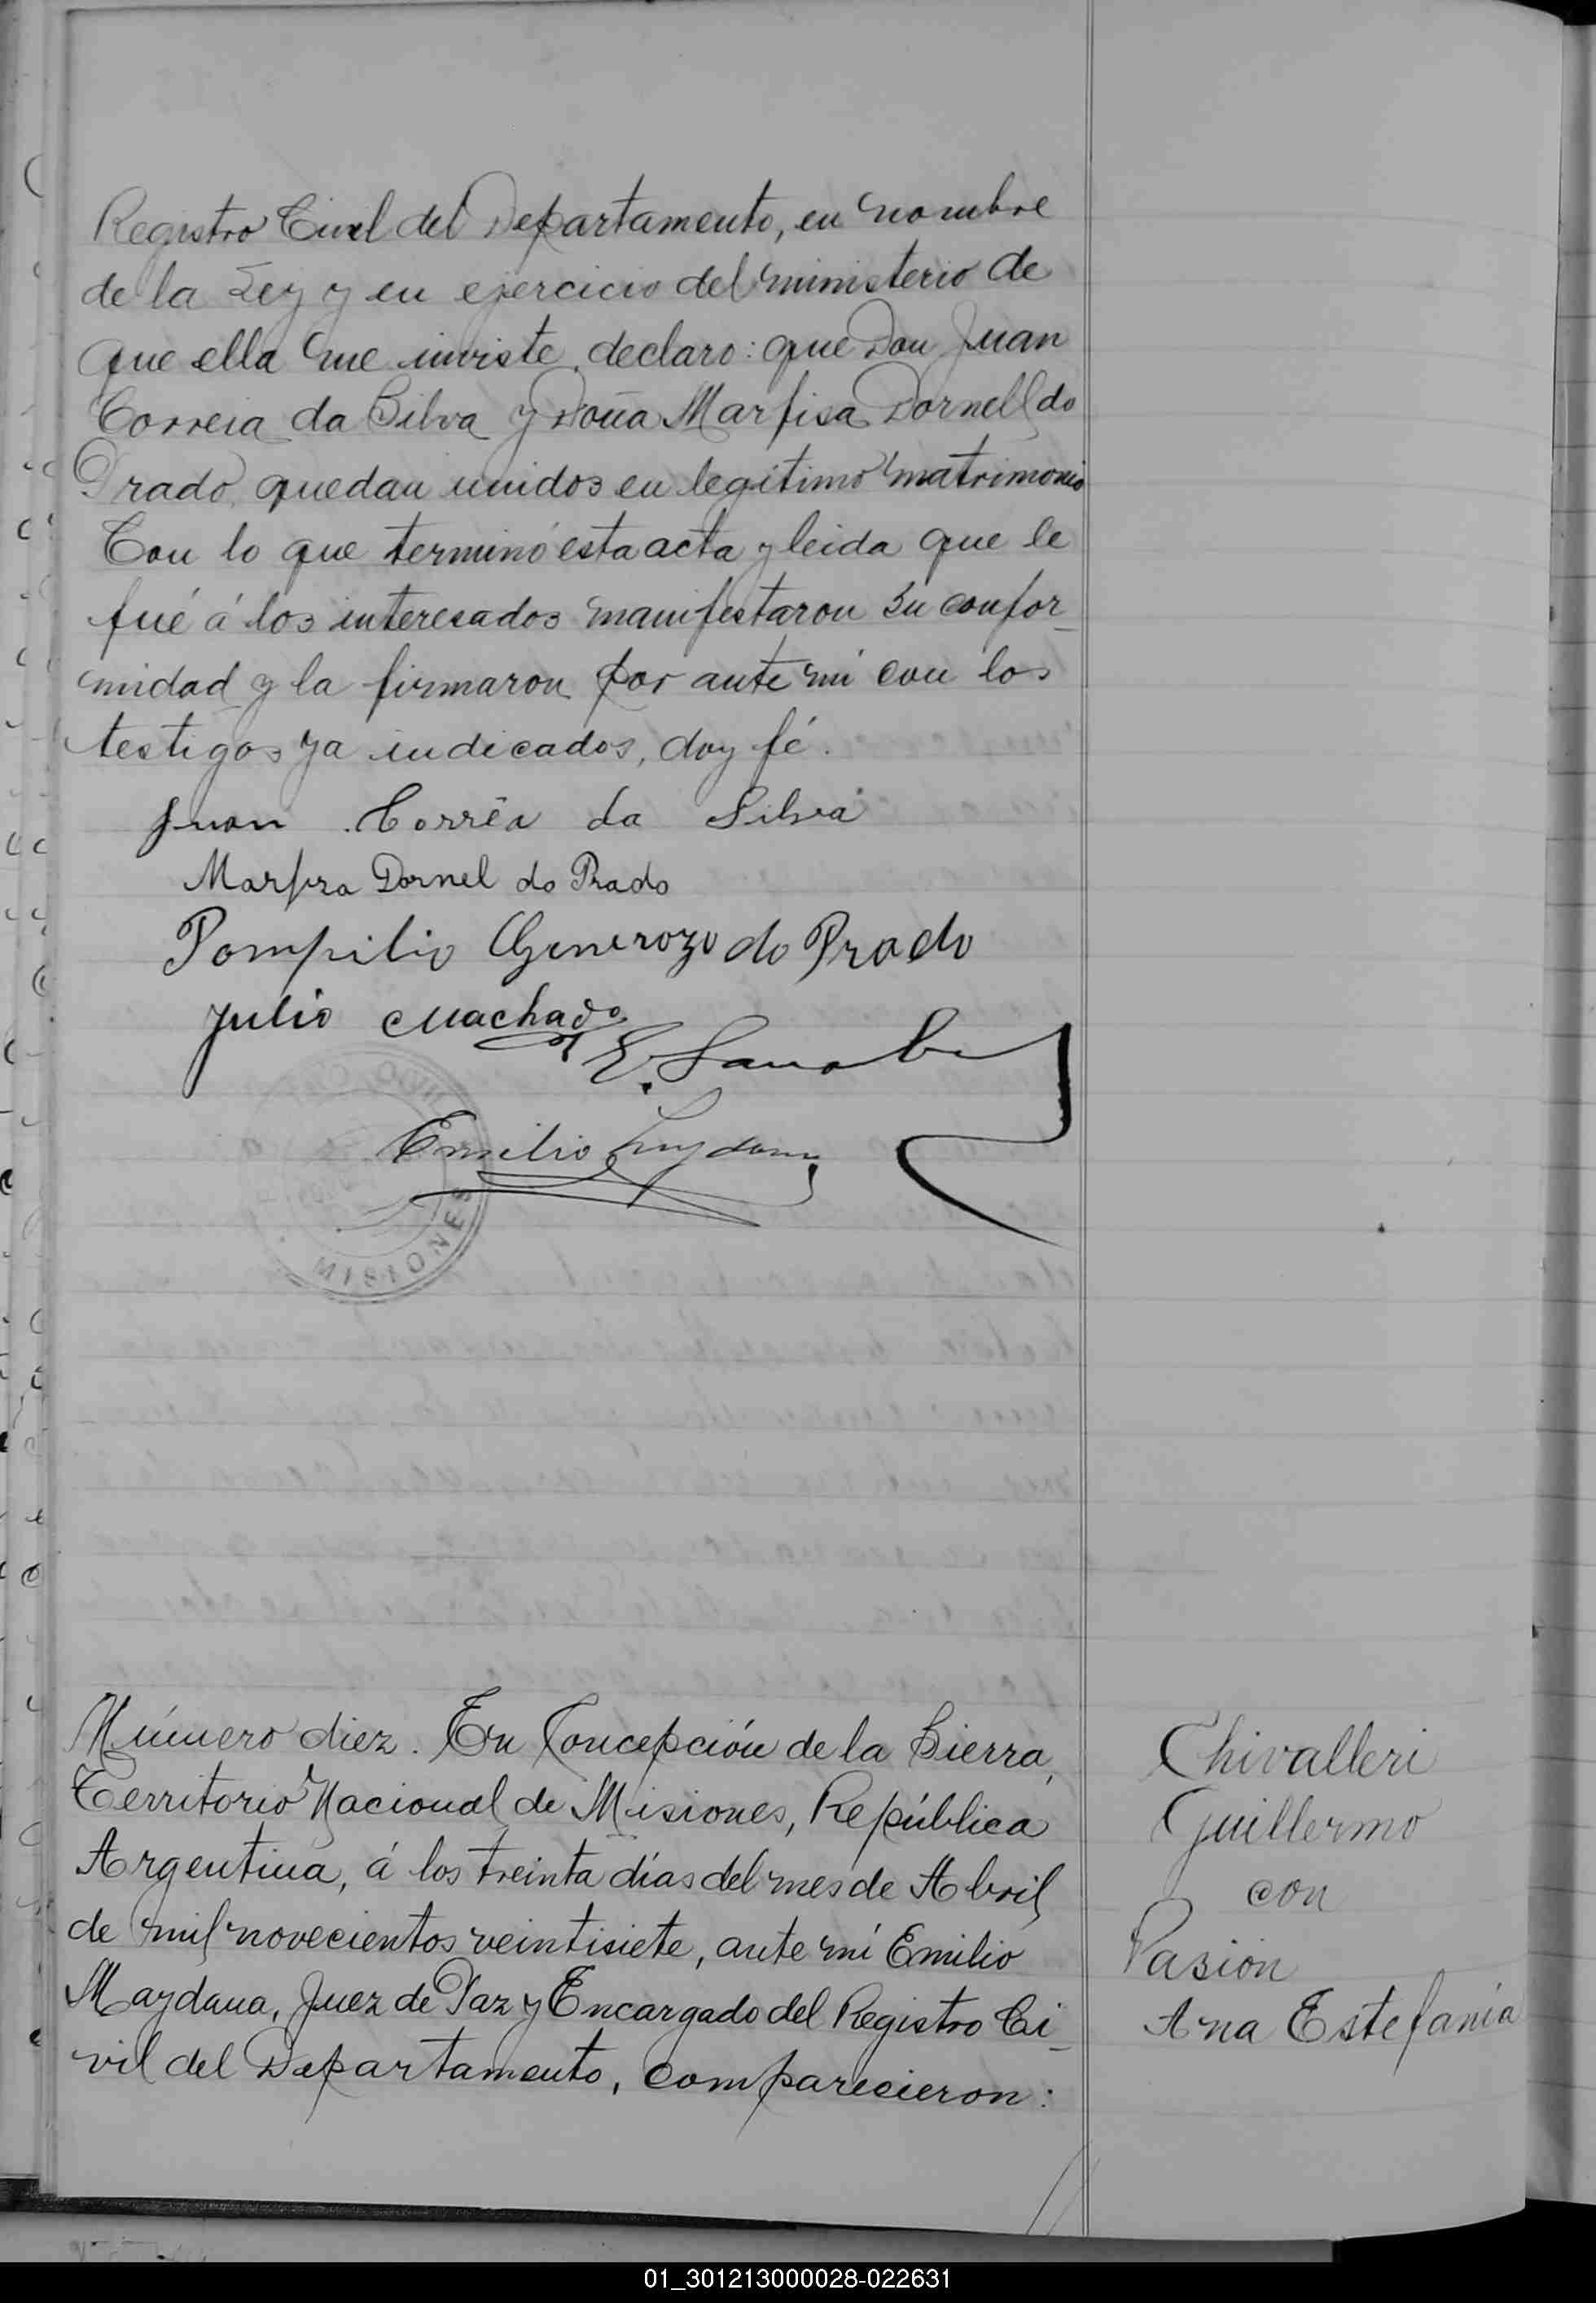 Registro Civil del Departamento, en nombre
de la Ley y en ejercicio del ministerio de
que ella me inviste, declaro: que Don Juan
Correia da Silva y Doña Marfisa Dornell do
Prado, quedan unidos en legítimo matrimonio
Con lo que terminó esta acta y leida que le
fué á los interesados manifestaron su confor_
midad y la firmaron por ante mi con los
testigos ya indicados, doy fé.
Juan Corrêa da Silva
Marfiza Dornel do Prado
Pompilio Generozo do Prado
Julio Machado
E.
Emilio Maydana
MISIONES
Número diez. En Concepción de la Sierra,
Territorio Nacional de Misiones, República
Argentina, á los treinta días del mes de Abril
de mil novecientos veintisiete, ante mí Emilio
Maydana, Juez de Paz y Encargado del Registro Ci_
vil del Departamento, comparecieron:
Chivalleri
Guillermo
con
Pasion
Ana Estefania
01_301213000028-022631